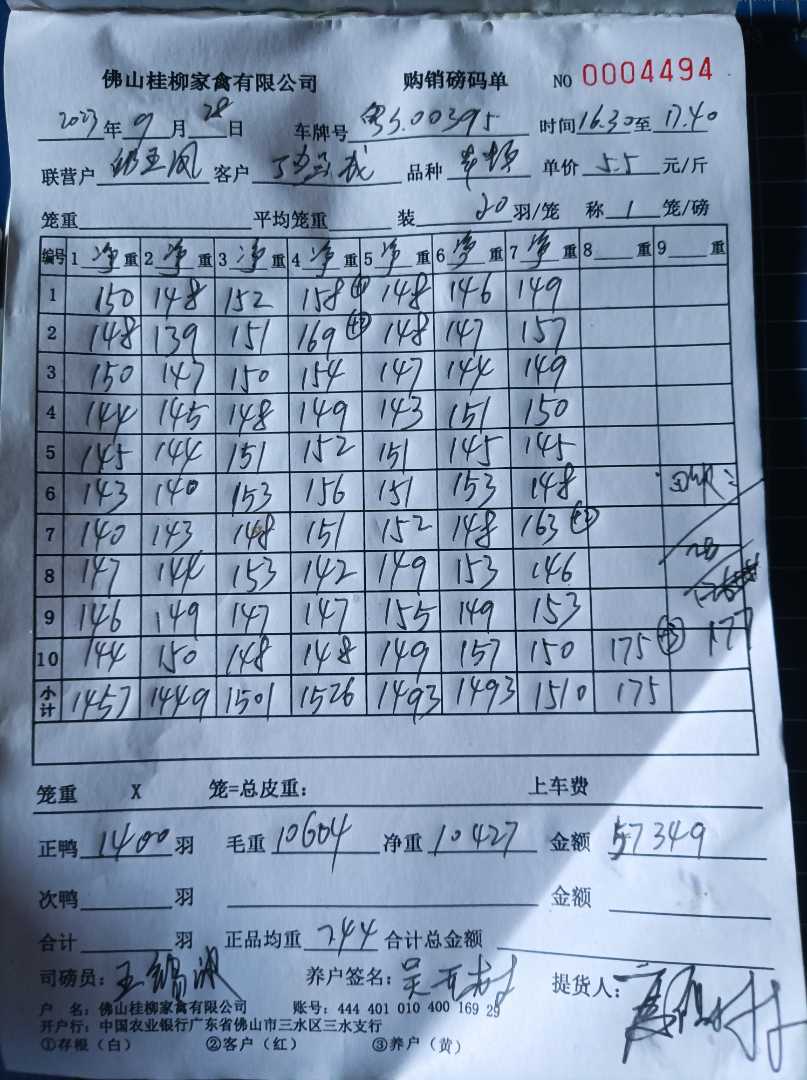 佛山桂柳家禽有限公司 购销磅码单 NO 0004494
2023年9月28日 车牌号 粤S.00395 时间16.30至17.40
联营户 客户 品种 单价5.5元/斤
笼重 平均笼重 装20羽/笼 称1笼/磅
编号 1净重 2净重 3净重 4净重 5净重 6净重 7净重 8重 9重
1 150 148 152 158 148 146 149
2 148 139 151 169 148 147 157
3 150 147 150 154 147 144 149
4 144 145 148 149 143 151 150
5 145 144 151 152 151 145 145
6 143 140 153 156 151 153 148
7 140 143 148 151 152 148 163
8 147 144 153 142 149 153 146
9 146 149 147 147 155 149 153
10 144 150 148 148 149 157 150 175 177
小计 1457 1449 1501 1526 1493 1493 1510 175
笼重 X 笼=总皮重: 上车费
正鸭1400羽 毛重10604 净重10427 金额57349
次鸭 羽 金额
合计 羽 正品均重7.44 合计总金额
司磅员: 养户签名: 提货人:
户 名: 佛山桂柳家禽有限公司 账号: 444 401 010 400 169 29
开户行: 中国农业银行广东省佛山市三水区三水支行
①存根(白) ②客户(红) ③养户(黄)